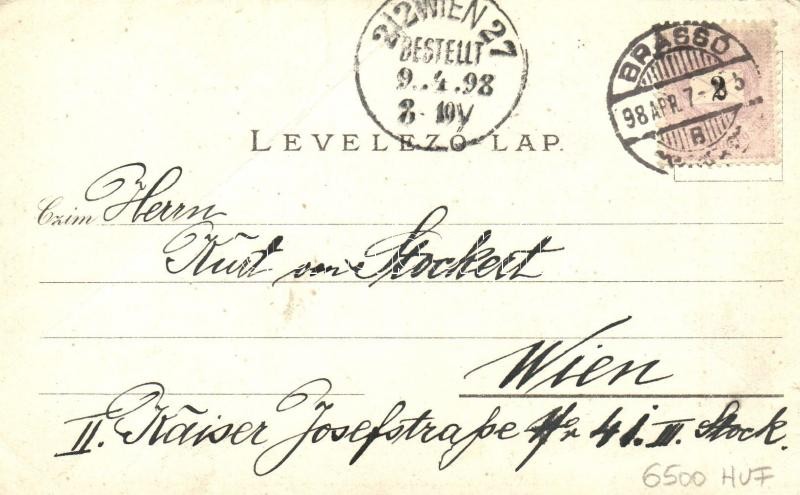 2/2 WIEN 27
BESTELLT
9.4.98
8-10V
BRASSÓ
98 APR. 7-
B
LEVELEZŐ LAP.
Czim Herrn
Kurt von Stockert
Wien
II. Kaiser Josefstraße Nr 41. III. Stock.
6500 HUF